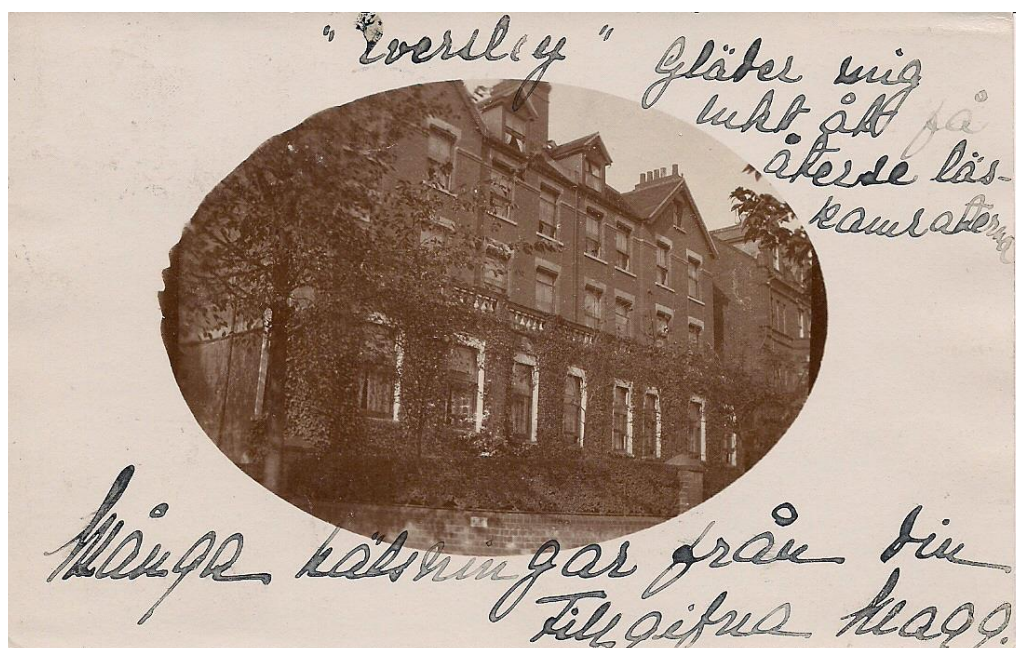 "Eversley"
Gläder mig
mkt åt få
återse läs-
kamraterna
Många hälsningar från din
Tillgifna Magg.